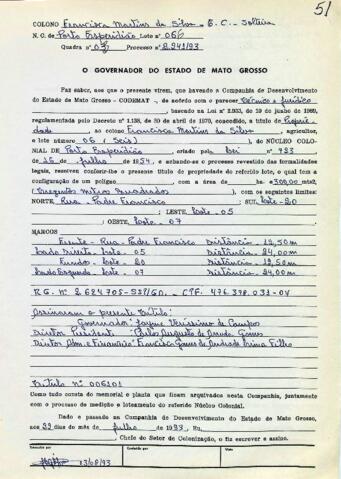 51
COLONO Francisca Martins da Silva - E. C. - Solteira
N. C. de Porto Esperidião Lote n.º 06
Quadra n.º 03 Processo n.º 2.241/93
O GOVERNADOR DO ESTADO DE MATO GROSSO
Faz saber, aos que o presente virem, que havendo a Companhia de Desenvolvimento
do Estado de Mato Grosso - CODEMAT -, de acordo com o parecer técnico e jurídico
baseado na Lei n.º 3.933, de 30 de junho de 1969,
regulamentada pelo Decreto n.º 1.138, de 30 de abril de 1970, concedido, a título de Proprie
dade ao colono Francisca Martins da Silva, agricultor,
o lote número 06 (Seis) do NÚCLEO COLO-
NIAL DE Porto Esperidião criado pela Lei n.º 723
de 26 de julho de 1954, e achando-se o processo revestido das formalidades
legais, resolvem conferir-lhe o presente título de propriedade do referido lote, o qual tem a
configuração de um polígono com a área de ha 300,00 mts2,
(Trezentos metros quadrados) com os seguintes limites:
NORTE, Rua - Padre Francisco SUL Lote - 20
LESTE, Lote - 05
OESTE, Lote - 07
MARCOS
Frente - Rua - Padre Francisco Distância - 12,50m
Lado Direito - Lote - 05 Distância - 24,00m
Fundos - Lote - 20 Distância - 12,50m
Lado Esquerdo - Lote - 07 Distância - 24,00m
Assinaram o presente título:
Governador: Jayme Veríssimo de Campos
Diretor Presidente: Paulo Augusto de Arruda Gomes
Título n.º 006101
Como tudo consta do memorial e planta que ficam arquivados nesta Companhia, juntamente
com o processo de medição e loteamento do referido Núcleo Colonial.
Dado e passado na Companhia de Desenvolvimento do Estado de Mato Grosso,
aos 22 dias do mês de julho de 1993, Eu,
Chefe do Setor de Colonização, o fiz escrever e assino.
Conferido por
Visto
13/08/93